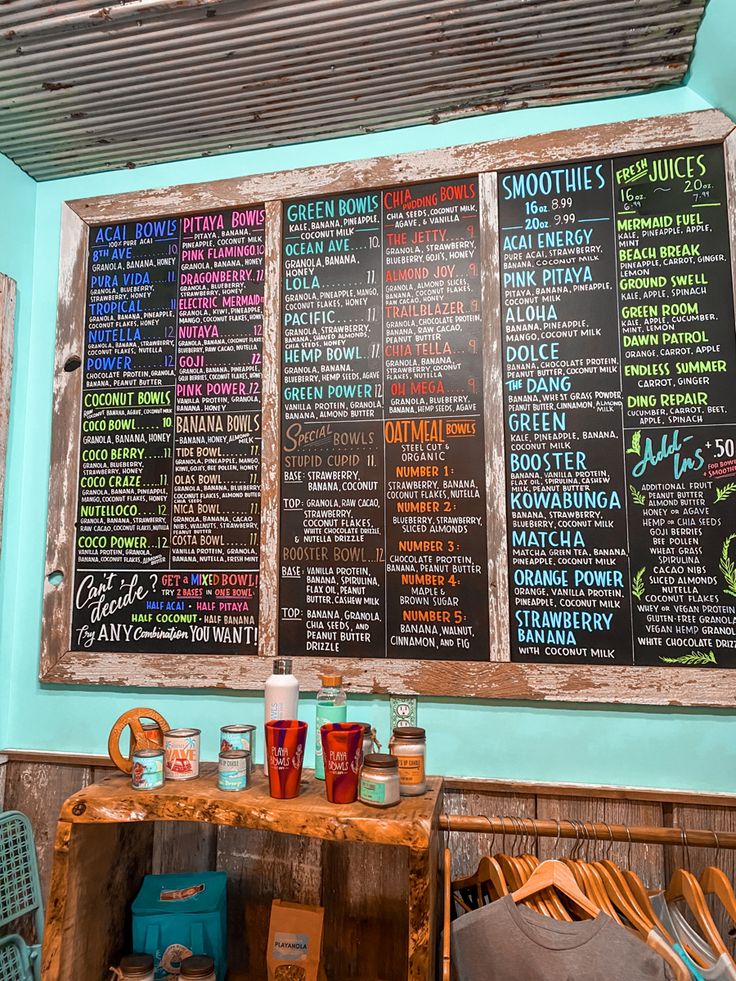 ACAI BOWLS
100% PURE ACAI
8TH AVE 10
GRANOLA, BANANA,
HONEY
PURA VIDA 11
GRANOLA, BLUEBERRY,
STRAWBERRY, HONEY
TROPICAL 11
GRANOLA, BANANA,
COCONUT FLAKES, HONEY
NUTELLA 12
GRANOLA, STRAWBERRY,
BANANA, NUTELLA
POWER 12
CHOCOLATE PROTEIN,
GRANOLA, BANANA,
PEANUT BUTTER
COCONUT BOWLS
COCO BOWL 10
GRANOLA, BANANA,
HONEY
COCO BERRY
GRANOLA, BLUEBERRY,
STRAWBERRY, HONEY
COCO CRAZE
GRANOLA, BANANA, PINEAPPLE,
COCONUT FLAKES, HONEY
NUTELLOCO
GRANOLA, STRAWBERRY,
BANANA, NUTELLA
COCO POWER
VANILLA PROTEIN, GRANOLA,
BANANA, PEANUT BUTTER
Can't decide?
GET A MIXED BOWL!
TRY 2 BASES IN ONE BOWL.
HALF ACAI • HALF PITAYA
HALF COCONUT • HALF GREEN
Try ANY Combination YOU WANT!
PITAYA BOWLS
PITAYA, BANANA,
PINEAPPLE, COCONUT MILK
PINK FLAMINGO
GRANOLA, STRAWBERRY,
COCONUT FLAKES, HONEY
DRAGONBERRY
GRANOLA, PINEAPPLE,
BLUEBERRY, HONEY
ELECTRIC MERMAID
GRANOLA, KIWI, PINEAPPLE,
MANGO, COCONUT FLAKES, HONEY
NUTAYA
GRANOLA, BANANA, BLUEBERRY,
RAW CACAO, NUTELLA
GOJI
GRANOLA, STRAWBERRY,
GOJI BERRIES, HONEY
PINK POWER 12
VANILLA PROTEIN, GRANOLA,
BANANA, HONEY
BANANA BOWLS
TIDE BOWL
GRANOLA, STRAWBERRY, MANGO,
KIWI, GOJI, BEE POLLEN, HONEY
OLAS BOWL
GRANOLA, BANANA, STRAWBERRY,
COCONUT FLAKES, ALMOND BUTTER
NICA BOWL
GRANOLA, BANANA, CACAO
NIBS, WALNUTS, STRAWBERRY,
HONEY
COSTA BOWL
VANILLA PROTEIN, GRANOLA,
GREEN BOWLS
KALE, BANANA, PINEAPPLE,
COCONUT MILK
OCEAN AVE 10
GRANOLA, BANANA,
HONEY
LOLA 11
GRANOLA, PINEAPPLE, MANGO,
COCONUT FLAKES, HONEY
PACIFIC 11
GRANOLA, STRAWBERRY,
BANANA, ALMOND BUTTER
HEMP BOWL 11
GRANOLA, STRAWBERRY,
BLUEBERRY, HEMP SEEDS, AGAVE
GREEN POWER 12
VANILLA PROTEIN, GRANOLA,
BANANA, ALMOND BUTTER
Special BOWLS
STUPID CUPID 11
BASE: STRAWBERRY,
BANANA, COCONUT
TOP: GRANOLA, RAW CACAO,
STRAWBERRY,
COCONUT FLAKES,
& NUTELLA DRIZZLE
BOOSTER BOWL 12
BASE: VANILLA PROTEIN,
BANANA, SPIRULINA,
FLAX OIL, PEANUT
BUTTER, CASHEW MILK
TOP: BANANA, GRANOLA,
CHIA SEEDS, AND
PEANUT BUTTER
DRIZZLE
CHIA PUDDING BOWLS
CHIA SEEDS, COCONUT MILK,
AGAVE & VANILLA
THE JETTY 9
GRANOLA, STRAWBERRY,
BLUEBERRY, GOJI'S, HONEY
ALMOND JOY 9
GRANOLA, BANANA, COCONUT FLAKES,
CACAO, HONEY
TRAILBLAZER 9
CHOCOLATE PROTEIN, GRANOLA,
BANANA, RAW CACAO,
CHIA TELLA 9
GRANOLA, BANANA,
STRAWBERRY, NUTELLA
OH MEGA 9
GRANOLA, BLUEBERRY,
BANANA, HEMP SEEDS, AGAVE
OATMEAL BOWLS
STEEL CUT &
ORGANIC
NUMBER 1:
STRAWBERRY, BANANA,
COCONUT FLAKES, NUTELLA
NUMBER 2:
BLUEBERRY, STRAWBERRY,
SLICED ALMONDS
NUMBER 3:
CHOCOLATE PROTEIN,
BANANA, PEANUT BUTTER
NUMBER 4:
MAPLE &
BROWN SUGAR
NUMBER 5:
BANANA, WALNUT,
CINNAMON, AND FLAX
SMOOTHIES
16oz 8.99
20oz 9.99
ACAI ENERGY
PURE ACAI, STRAWBERRY,
BLUEBERRY, BANANA, COCONUT MILK
PINK PITAYA
PITAYA, BANANA, PINEAPPLE,
COCONUT MILK
ALOHA
BANANA, PINEAPPLE,
MANGO, COCONUT MILK
DOLCE
BANANA, CHOCOLATE PROTEIN,
THE DANG
BANANA, WHEY PROTEIN, GRANOLA,
PEANUT BUTTER, CINNAMON, ALMOND MILK
GREEN
KALE, PINEAPPLE, BANANA,
COCONUT MILK
BOOSTER
BANANA, VANILLA PROTEIN,
FLAX OIL, SPIRULINA, CASHEW
MILK, PEANUT BUTTER
KOWABUNGA
BANANA, STRAWBERRY,
BLUEBERRY, COCONUT MILK
MATCHA
MATCHA GREEN TEA, BANANA,
COCONUT MILK
ORANGE POWER
PINEAPPLE, COCONUT MILK
STRAWBERRY
BANANA
WITH COCONUT MILK
FRESH JUICES
16oz 20oz
MERMAID FUEL
KALE, PINEAPPLE, APPLE,
MINT
BEACH BREAK
PINEAPPLE, CARROT, GINGER,
LEMON
GROUND SWELL
KALE, APPLE, SPINACH
GREEN ROOM
KALE, APPLE, CUCUMBER,
MINT, LEMON
DAWN PATROL
ORANGE, CARROT, APPLE
ENDLESS SUMMER
CARROT, GINGER
DING REPAIR
CUCUMBER, CARROT, BEET,
SPINACH, APPLE
Add-Ins +.50
FOR BOWL OR SMOOTHIE
ADDITIONAL FRUIT
PEANUT BUTTER
ALMOND BUTTER
HONEY OR AGAVE
HEMP OR CHIA SEEDS
GOJI BERRIES
BEE POLLEN
WHEAT GRASS
SPIRULINA
CACAO NIBS
SLICED ALMONDS
NUTELLA
COCONUT FLAKES
WHEY OR VEGAN PROTEIN
GLUTEN-FREE GRANOLA
VEGAN HEMP GRANOLA
CHOCOLATE DRIZZLE
WAVE
PLAYA
BOWLS
PLAYA
BOWLS
PLAYANOLA